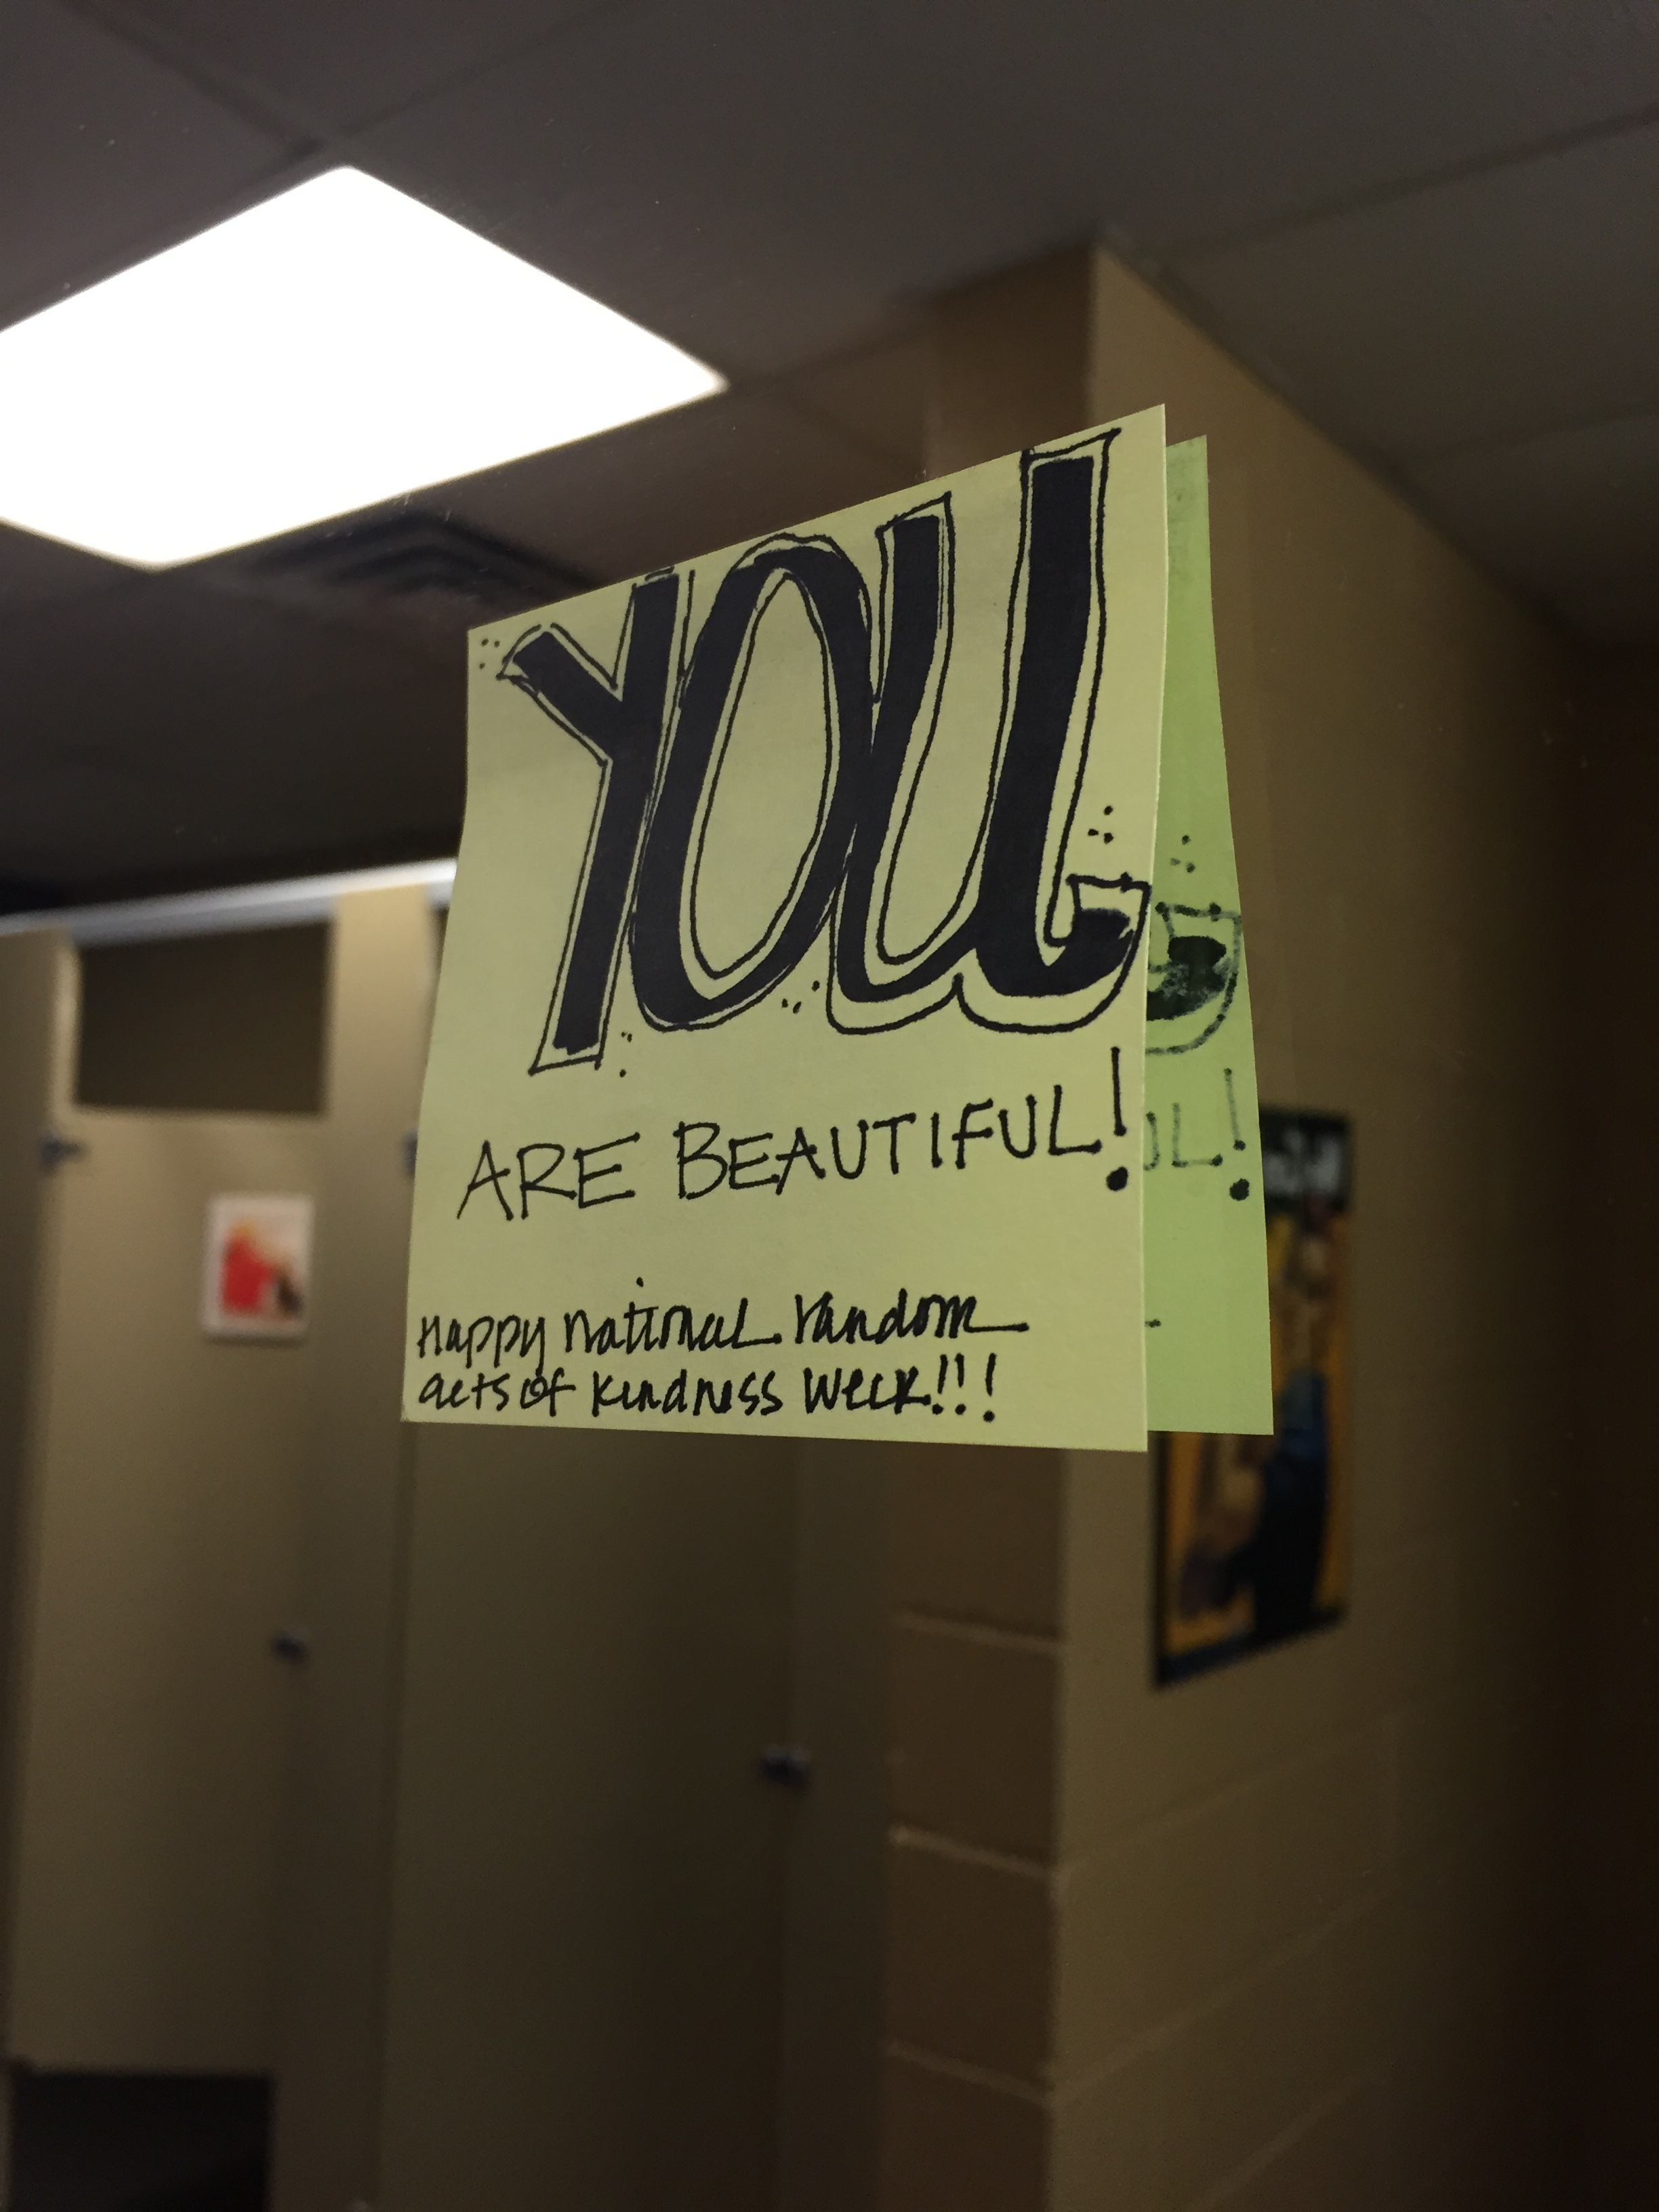 YOU
ARE BEAUTIFUL!
Happy national random
acts of kindness week!!!